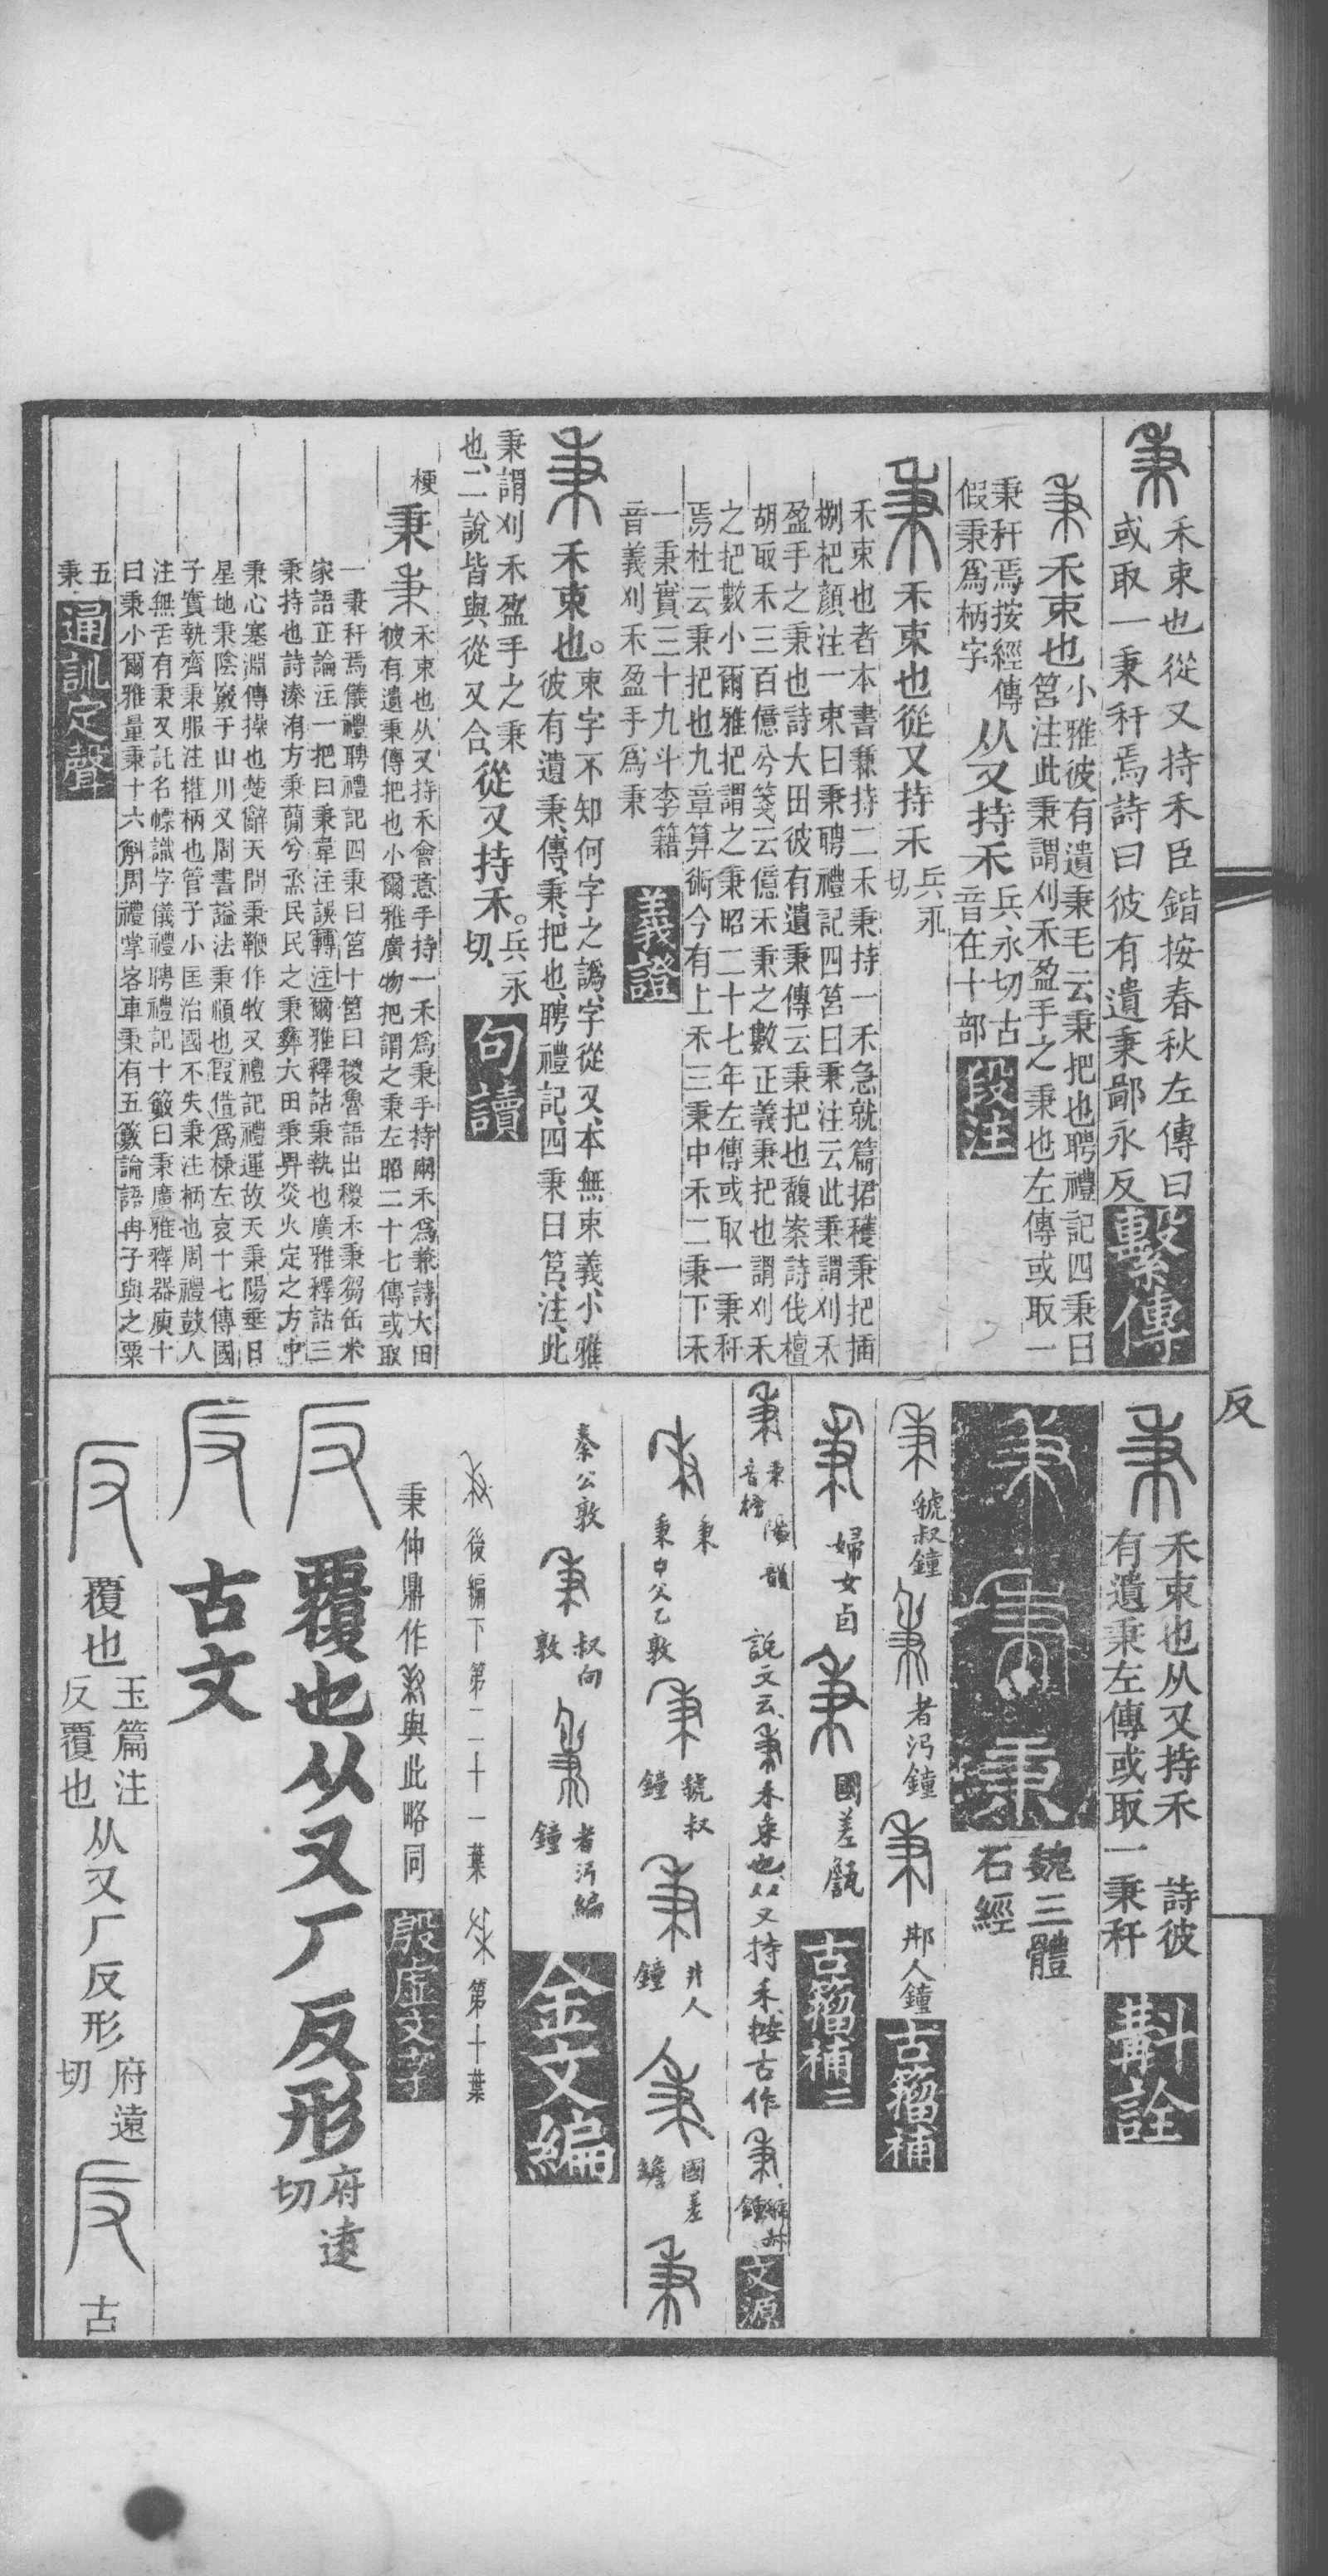 禾束也從又持禾臣鍇按春秋左傳曰
或取一秉秆焉詩曰彼有遺秉鄙永反
繫傳
禾束也
小雅彼有遺秉毛云秉把也聘禮記四秉曰
筥注此秉謂刈禾盈手之秉也左傳或取一
秉秆焉按經傳
假秉爲柄字
从又持禾
兵永切古
音在十部
段注
禾束也從又持禾
兵永
切
禾束也者本書兼持二禾秉持一禾急就篇捃穫秉把插
捌杷顏注一束曰秉聘禮記四筥曰秉注云此秉謂刈禾
盈手之秉也詩大田彼有遺秉傳云秉把也馥案詩伐檀
胡取禾三百億兮箋云億禾秉之數正義秉把也謂刈禾
之把數小爾雅把謂之秉昭二十七年左傳或取一秉秆
焉杜云秉把也九章算術今有上禾三秉中禾二秉下禾
一秉實三十九斗李籍
音義刈禾盈手爲秉
義證
禾束也。
束字不知何字之譌、字從又、本無束義、小雅
彼有遺秉、傳、秉、把也、聘禮記、四秉曰筥、注、此
秉謂刈禾盈手之秉
也、二說皆與從又合、
從又持禾。
兵永
切、
句讀
梗
秉
禾束也从又持禾會意手持一禾爲秉手持兩禾爲兼詩大田
彼有遺秉傳把也小爾雅廣物把謂之秉左昭二十七傳或取
一秉秆焉儀禮聘禮記四秉曰筥十筥曰稯魯語出稯禾秉芻缶米
家語正論注一把曰秉韋注誤轉注爾雅釋詁秉執也廣雅釋詁三
秉持也詩溱洧方秉蕑兮烝民民之秉彝大田秉畀炎火定之方中
秉心塞淵傳操也楚辭天問秉鞭作牧又禮記禮運故天秉陽垂日
星地秉陰竅于山川又周書謚法秉順也叚借爲棅左哀十七傳國
子實執齊秉服注權柄也管子小匡治國不失秉注柄也周禮鼓人
注無舌有秉又託名幖識字儀禮聘禮記十籔曰秉廣雅釋器庾十
曰秉小爾雅量秉十六斛周禮掌客車秉有五籔論語冉子與之粟
五
秉
通訓定聲
反
禾束也从又持禾
詩彼
有遺秉左傳或取一秉秆
斠詮
魏三體
石經
虢叔鐘
者沔鐘
邢人鐘
古籀補
婦女卣
國差𦉜
古籀補二
秉 陽韻
音榜
說文云禾束也从又持禾按古作
文源
秉
秉中父乙敦
虢叔
鐘
井人
鐘
國差
秦公敦
叔向
敦
者沔編
鐘
金文編
後編下第二十一葉
第十葉
秉仲鼎作與此略同
殷虛文字
覆也从又厂反形
府遠
切
古文
覆也
玉篇注
反覆也
从又厂反形
府遠
切
古